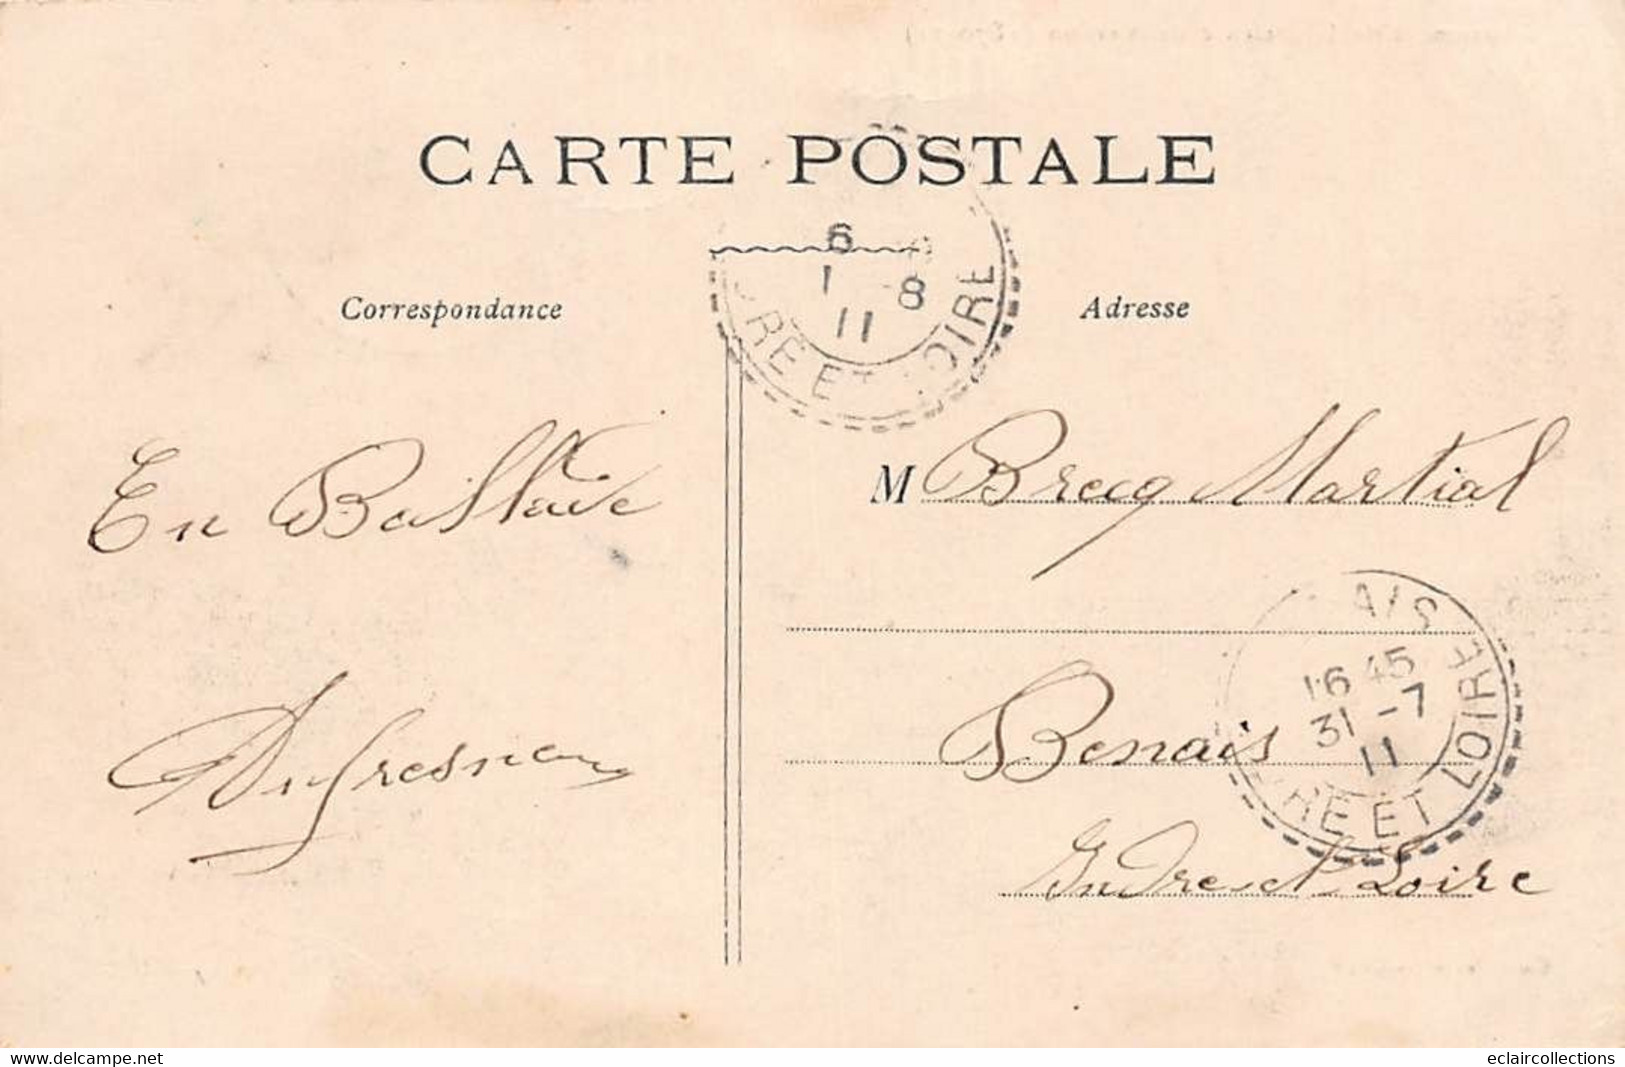 CARTE POSTALE
6
1 8
11
RE ET LOIRE
Correspondance
Adresse
En Ballade
M Brecq Martial
AIS
16 45
31 -7
11
RE ET LOIRE
Dufresne
Benais
Indre et Loire
www.delcampe.net
eclaircollections